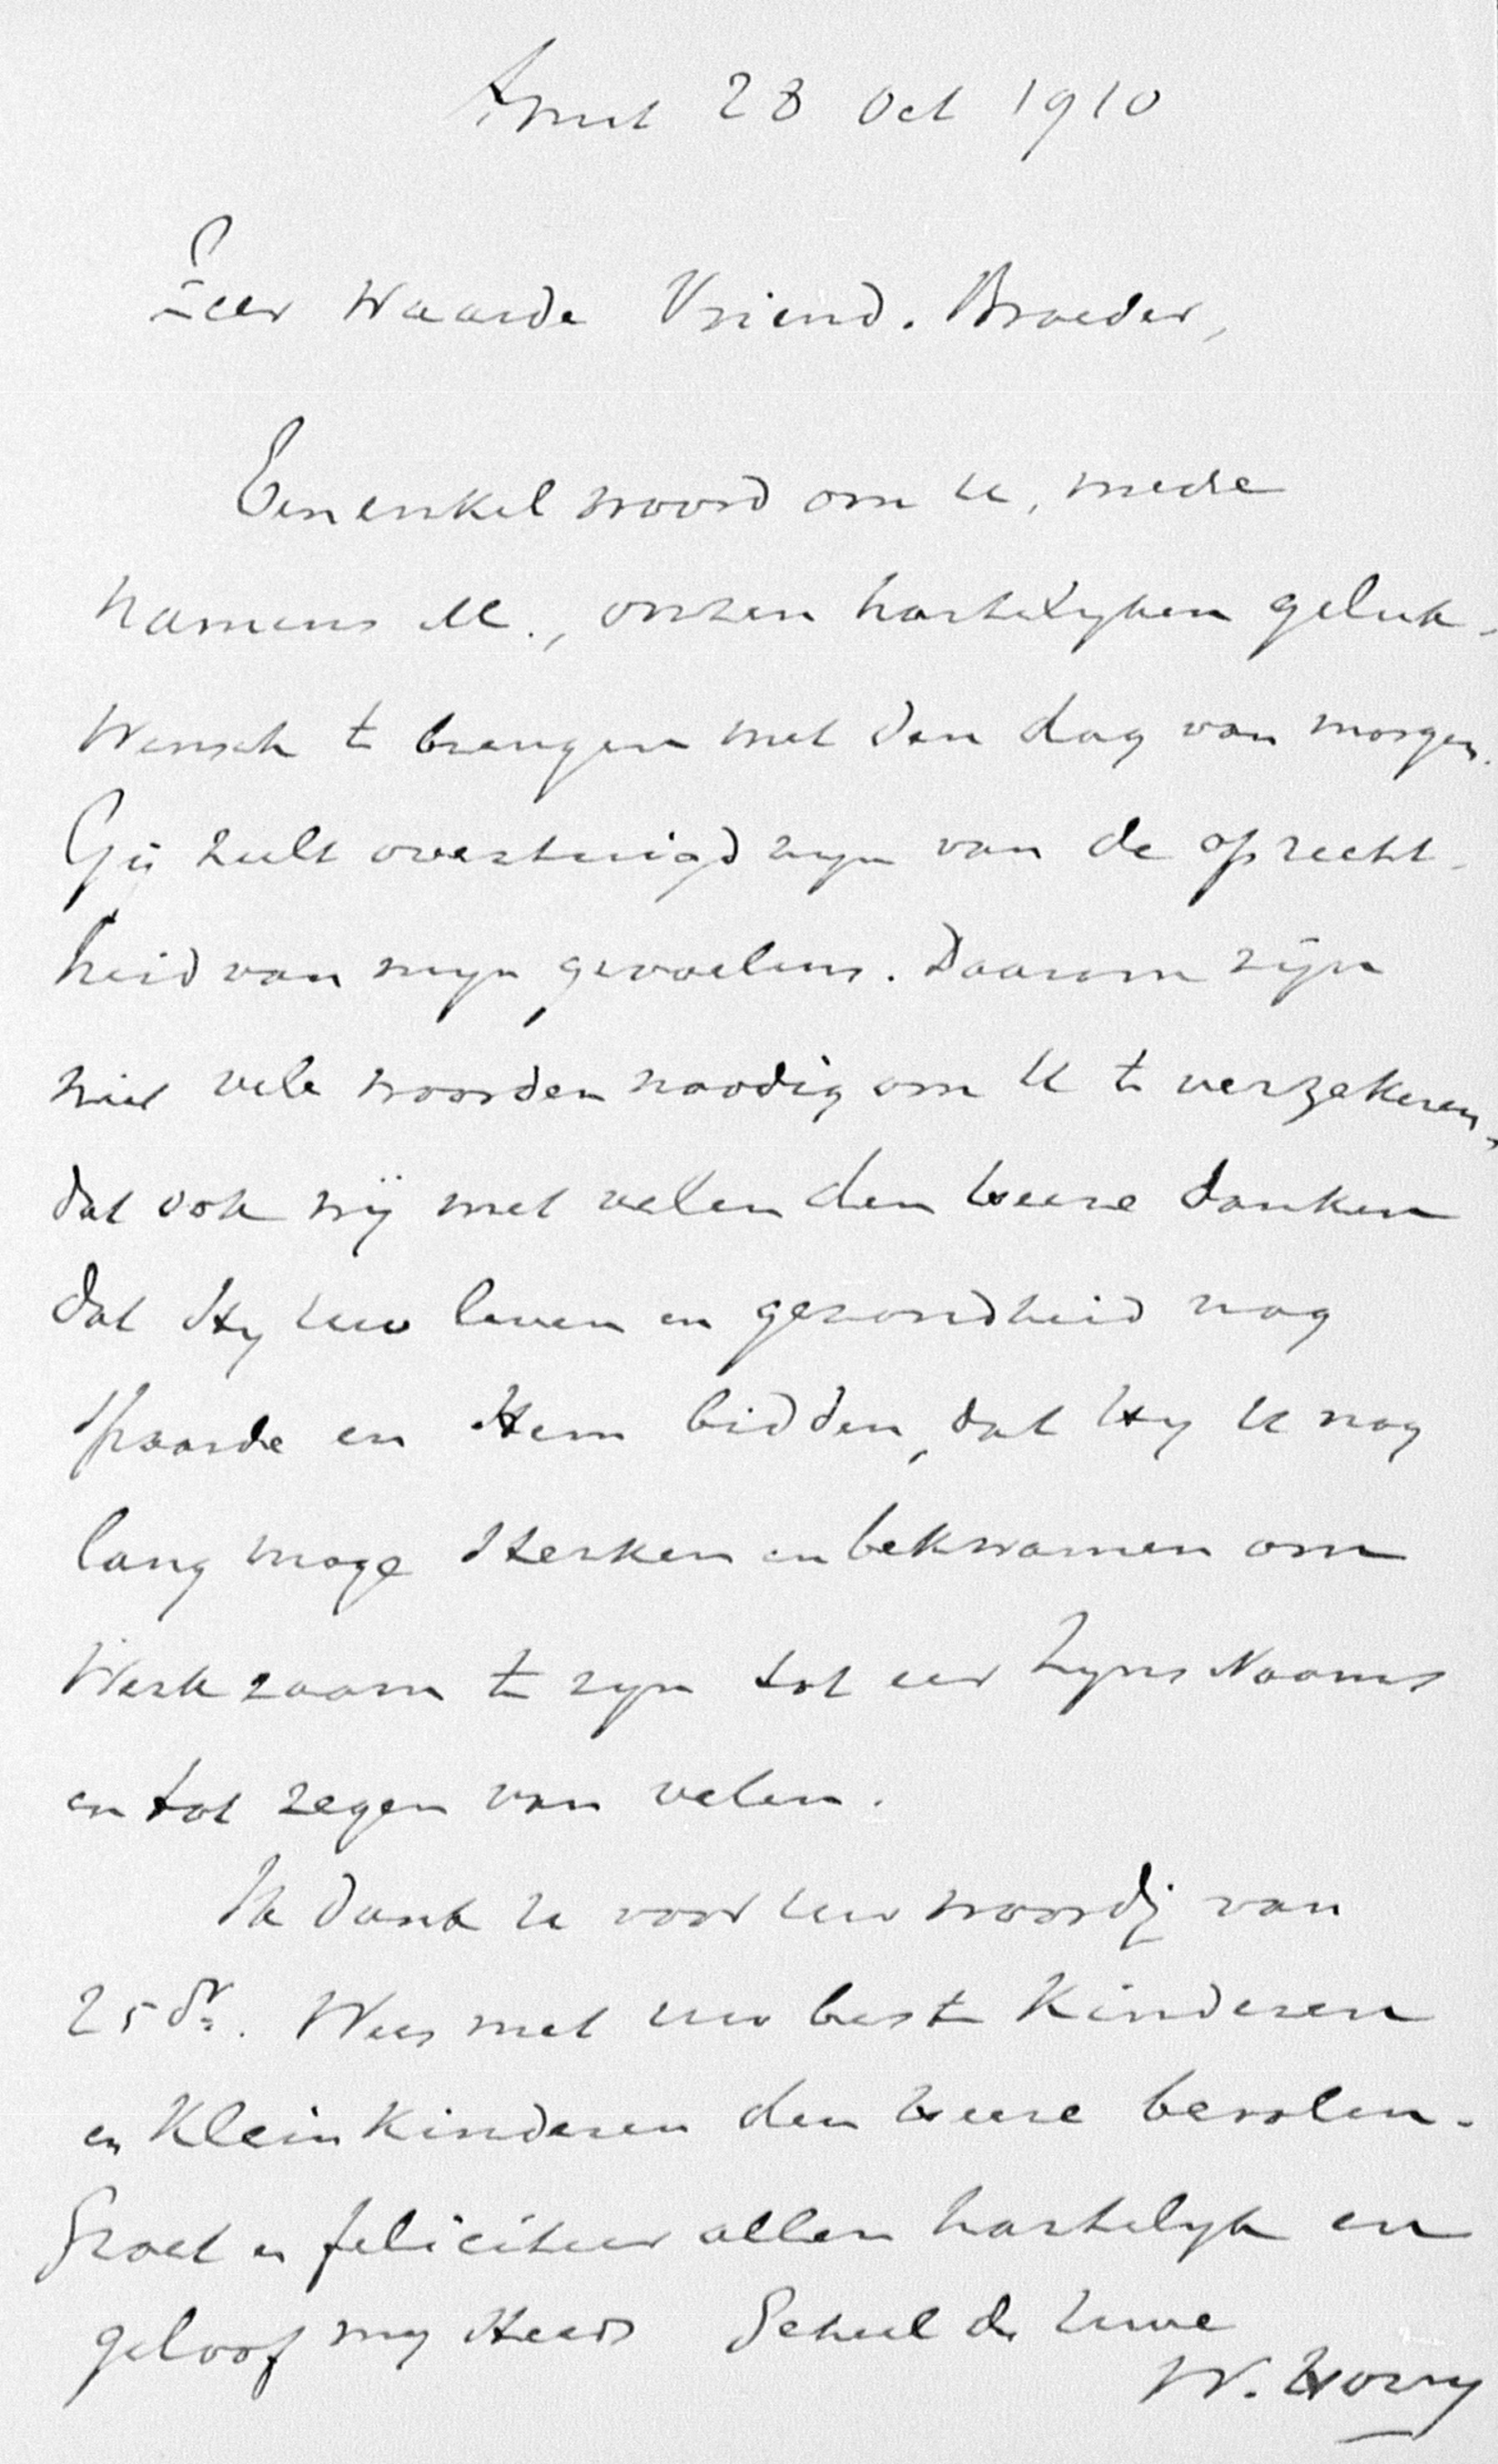 Amst 28 Oct 1910
Zeer Waarde Vriend. Broeder,
Een enkel woord om U, mede
namens M., onzen hartelyken geluk-
wensch te brengen met den dag van morgen.
Gij zult overtuigd zyn van de oprecht-
heid van myn gevoelens. Daarom zijn
niet vele woorden noodig om U te verzekeren,
dat ook wij met velen den Heere danken
dat Hy Uw leven en gezondheid nog
spaarde en Hem bidden, dat Hy U nog
lang moge sterken en bekwamen om
Werkzaam te zyn tot eer Zyns Naams
en tot zegen van velen.
Ik dank U voor Uw woordj van
25 dr. Wees met uw beste Kinderen
en Kleinkinderen den Heere bevolen.
Groet en feliciteer allen hartelyk en
geloof my steeds Geheel de Uwe
W. Hovy